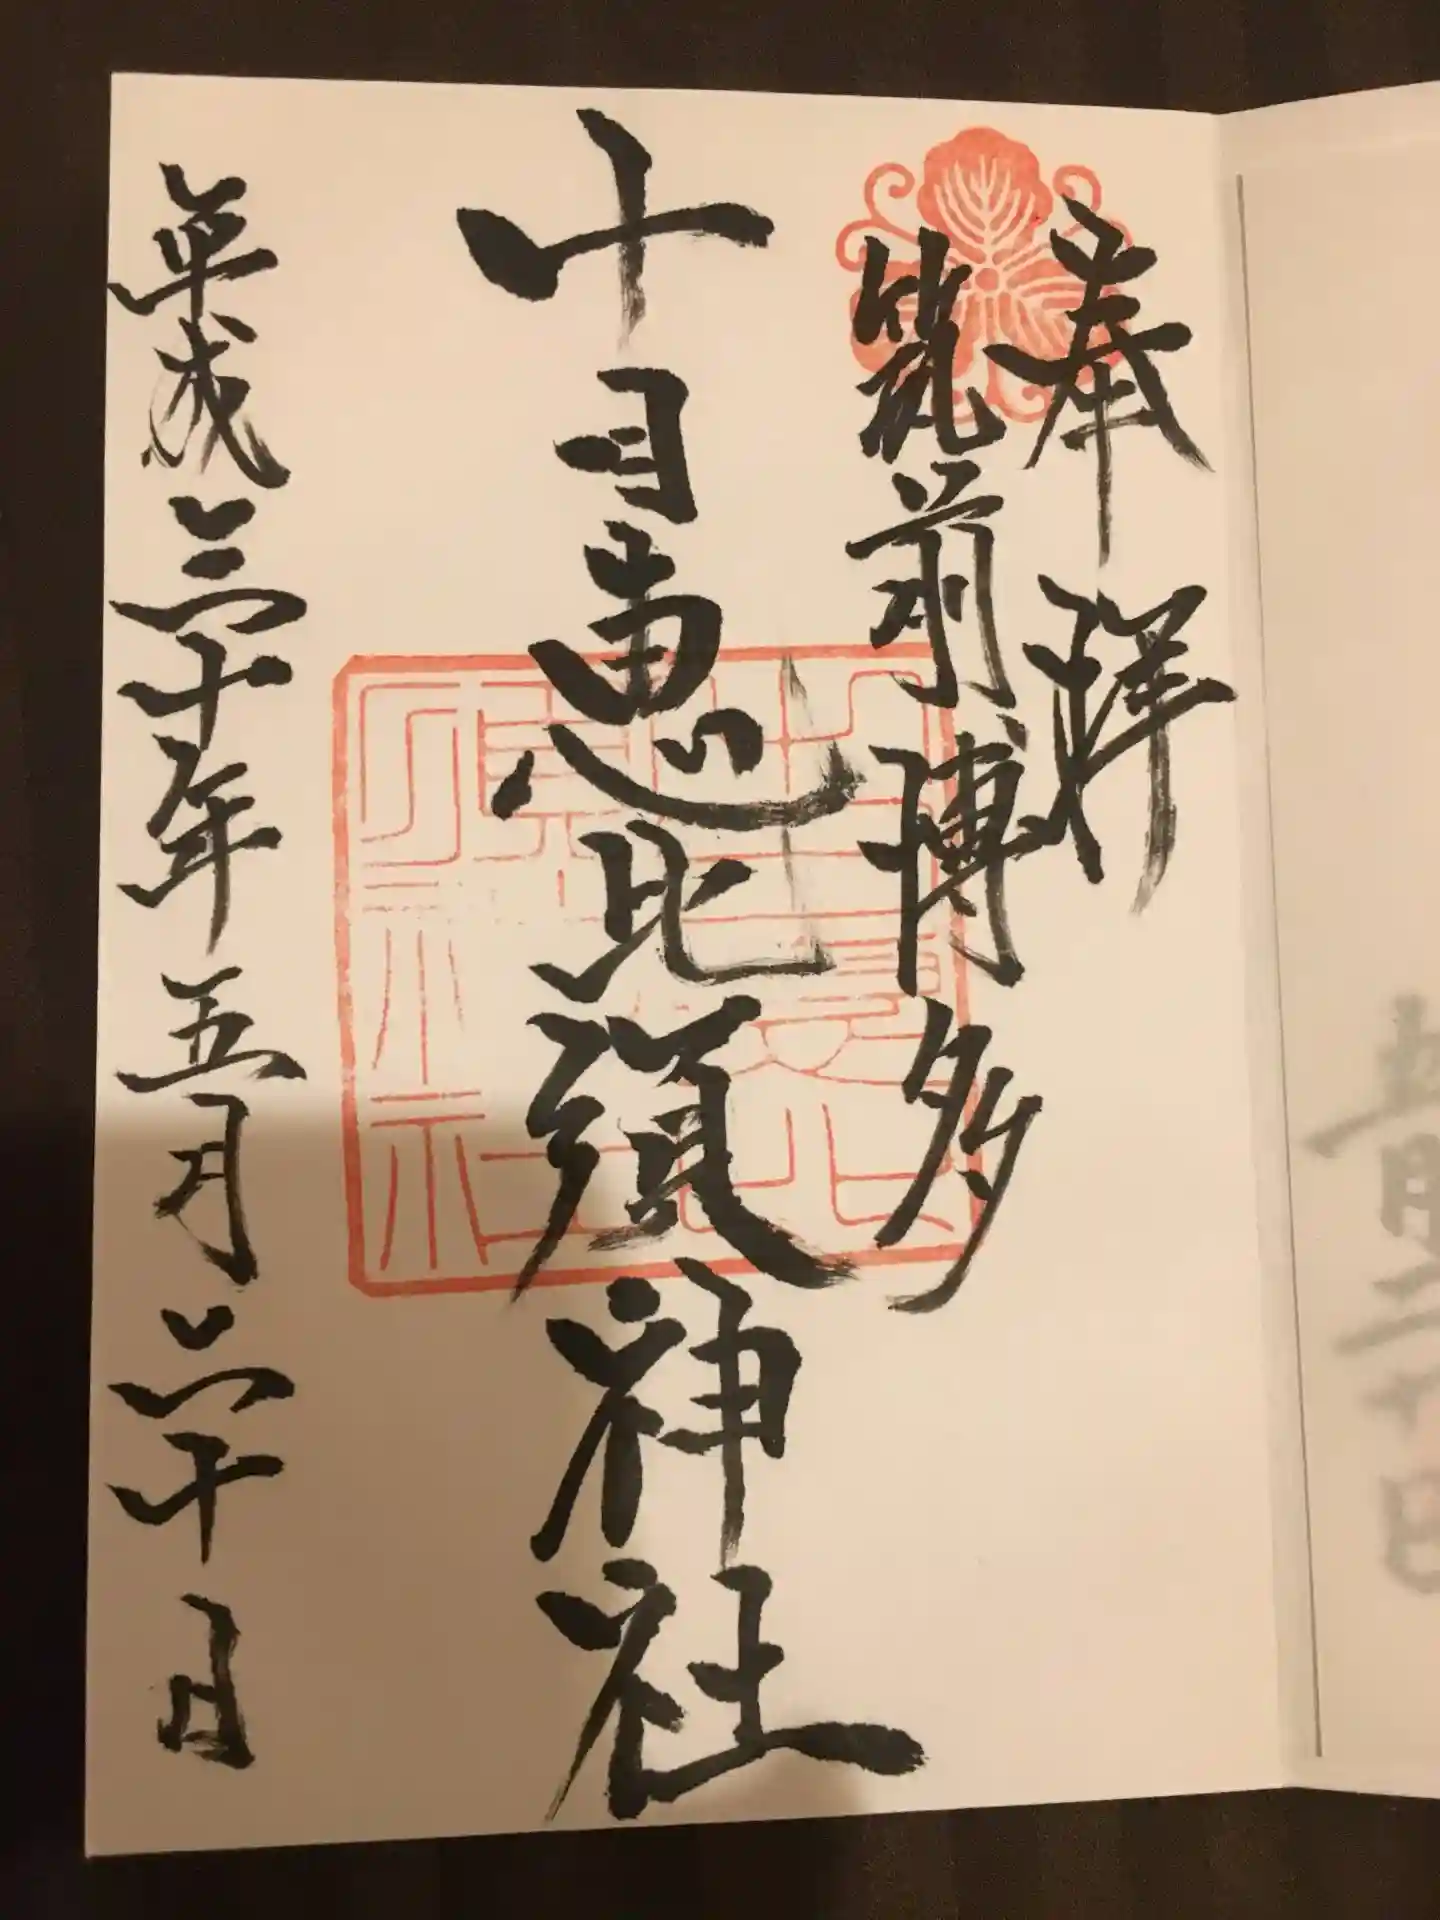 奉拝
筑前博多
十日恵比須神社
平成三十年五月六十日
十日恵比須神社